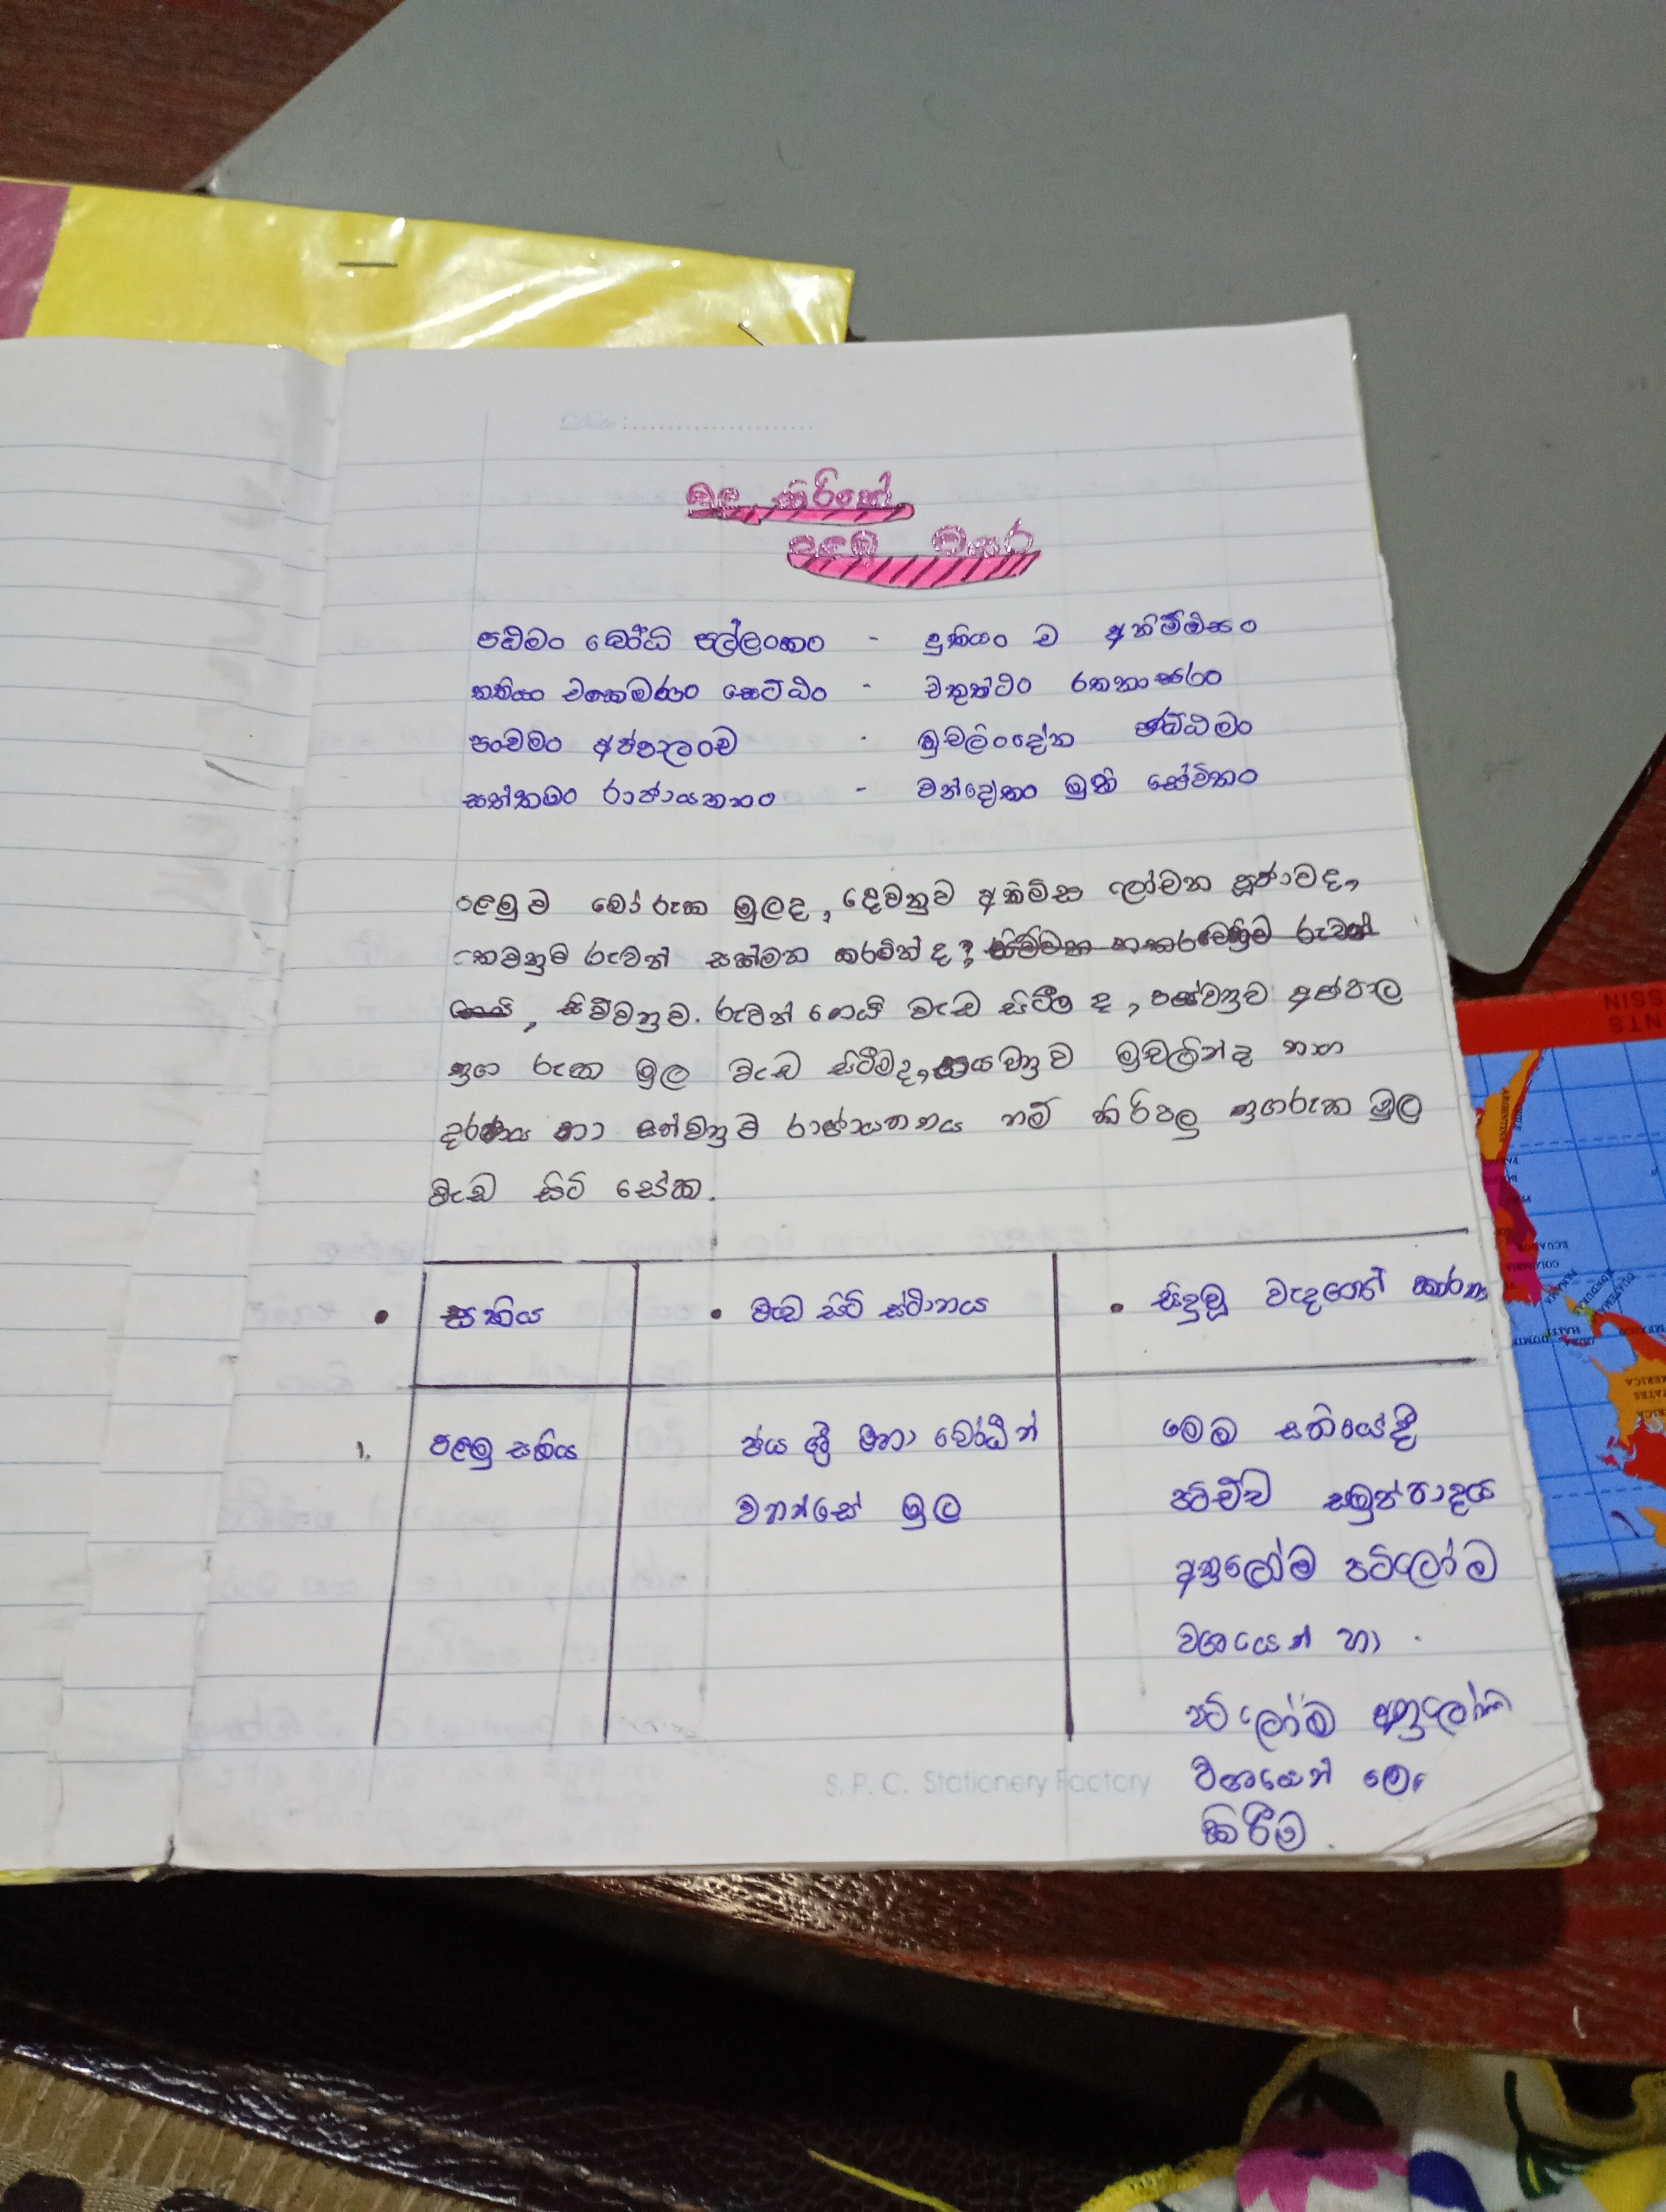 Date:
බුදු කිරිතේ
පළමු විහාර
පඨමං බෝධි පල්ලංකං - දුතියං ච අනිම්මිසං
තතියං චංකමණං සෙට්ඨං - චතුත්ථං රතනාඝරං
පංචමං අජපාලංච - මුචලිංදේන ඡට්ඨමං
සත්තමං රාජායතනං - වන්දේතං මුනි සේවිතං
පළමුව බෝ රුක මුලද, දෙවනුව අනිමිස ලෝචන පූජාවද,
තෙවනුව රුවන් සක්මන කරමින් ද,
, සිව්වනුව රුවන් ගෙයි වැඩ සිටීම ද, පස්වනුව අජපාල
නුග රුක මුල වැඩ සිටීමද, සයවනුව මුචලින්ද නාග
දරණය හා සත්වනුව රාජායතනය නම් කිරිපලු නුගරුක මුල
වැඩ සිටි සේක.
• සතිය • වැඩ සිටි ස්ථානය • සිදුවූ වැදගත් කරුණ
1. පළමු සතිය ජය ශ්‍රී මහා බෝධීන් මෙම සතියේදී
වහන්සේ මුල පටිච්ච සමුප්පාදය
අනුලෝම පටිලෝම
වශයෙන් හා
පටිලෝම අනුලෝම
වශයෙන්
කිරීම.
S. P. C. Stationery Factory
ARGENTINA
ECUADOR
COLOMBIA
HAITI